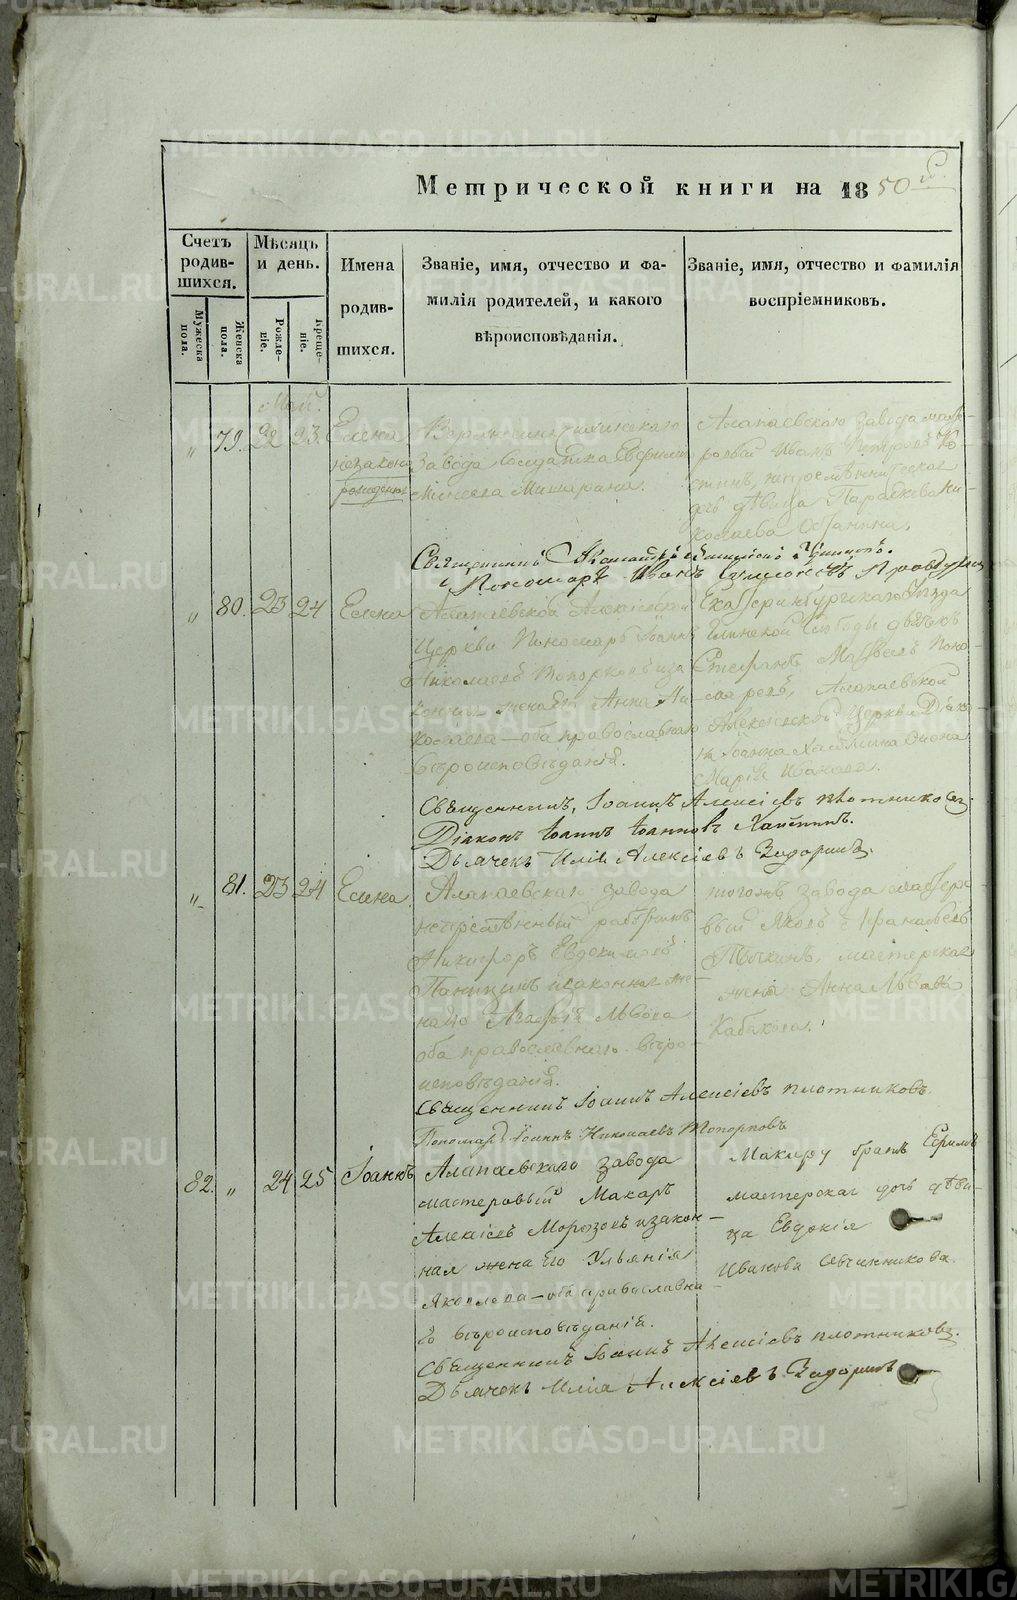 Метрической книги на 1850 й.
Счетъ родившихся.
Мѣсяцъ и день.
Имена родившихся.
Званіе, имя, отчество и фамилія родителей, и какого вѣроисповѣданія.
Званіе, имя, отчество и фамилія воспріемниковъ.
Мужеска пола.
Женска пола.
Рожденіе.
Крещеніе.
Май.
„ 79. 22 23. Елена
незаконо
рожденная
завода солдатка
Мишарина.
Алапаевскаго завода масте-
ровый Иванъ Петровъ Ко-
стинъ,
дочь дѣвица Параскева Ни-
колаева Останина.
Священникъ
Пономарь Иванъ
„ 80. 23 24 Елена
Алапаевской Алексіевской
Церкви Пономарь Іоаннъ
Николаевъ Топорковъ и за
конная жена его Анна Ни-
колаева — оба православнаго
вѣроисповѣданія.
Екатеринбургскаго уѣзда
Слободы
Стефанъ Матвеевъ Поно-
маревъ, Алапаевской
Алексіевской Церкви Діако-
на Іоанна
Марія Иванова.
Священникъ, Іоаннъ Алексіевъ Плотниковъ.
Діаконъ Іоаннъ Іоанновъ
Дьячекъ Илія Алексіевъ Задоринъ.
„ 81. 23 24 Елена.
Алапаевскаго завода
непремѣнный работникъ
Никифоръ Евдокимовъ
Паницинъ и законная же-
на его Агафія Львова
оба православнаго вѣро-
исповѣданія.
тогожъ завода мастеро-
вый Яковъ
мастерская
жена Анна Львова
Кабакова.
Священникъ Іоаннъ Алексіевъ Плотниковъ.
Пономарь Іоаннъ Николаевъ Топорковъ
82. „ 24 25 Іоаннъ
Алапаевскаго завода
мастеровый Макаръ
Алексіевъ Морозовъ и закон-
ная жена его Ульянія
Яковлева — оба православна-
го вѣроисповѣданія.
Макару братъ Ефимъ
мастерская дочь дѣви-
ца Евдокія
Иванова Овчинникова.
Священникъ Іоаннъ Алексіевъ Плотниковъ.
Дьячекъ Илія Алексіевъ Задоринъ
METRIKI.GASO-URAL.RU